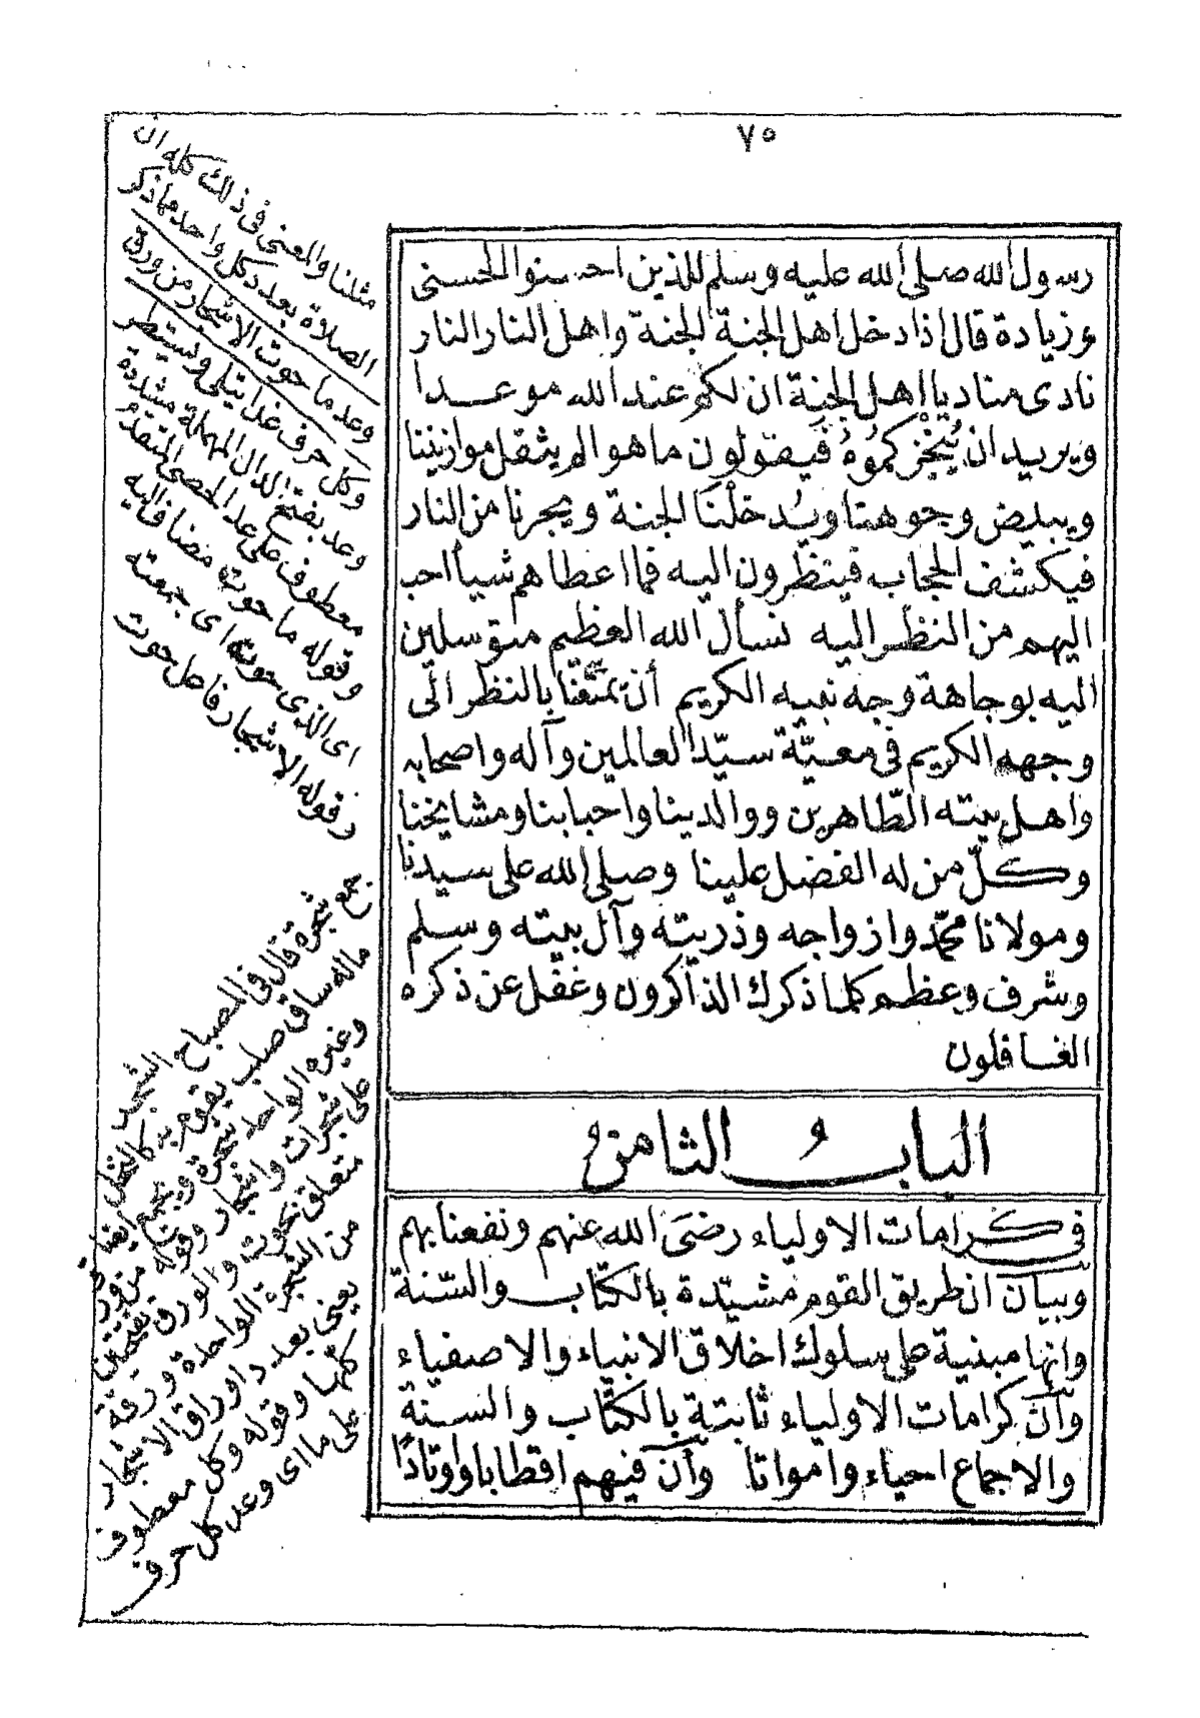 ٧٥
رسول الله صلى الله عليه وسلم للذين احسنوا الحسنى
وزيادة قال اذا دخل اهل الجنة الجنة واهل النار النار
نادى مناد يا اهل الجنة ان لكم عند الله موعدا
ويريد ان يُنجزكموُهُ فيقولون ما هو الم يثقل موازيننا
ويبيض وجوهنا ويُدخلنا الجنة ويجرنا من النار
فيكشف الحجاب فينظرون اليه فما اعطاهم شيأ احب
اليهم من النظر اليه نسأل الله العظيم متوسلين
اليه بوجاهة وجه نبيه الكريم أن يمتّعنا بالنظر الى
وجهه الكريم فى معيّة سيّد العالمين وآله واصحابه
واهل بيته الطّاهرين ووالدينا واحبابنا ومشايخنا
وكلّ من له الفضل علينا وصلى الله على سيدنا
ومولانا محمّد وازواجه وذرّيته وآل بيته وسلم
وشرف وعظم كلما ذكرك الذاكرون وغفل عن ذكره
الغافلون
البابُ الثامنُ
فى كرامات الاولياء رضىَ الله عنهم ونفعنا بهم
وبيان ان طريق القوم مشيّدة بالكتاب والسّنة
وانها مبنية على سلوك اخلاق الانبياء والاصفياء
وأنّ كرامات الاولياء ثابتة بالكتاب والسنة
والاجماع احياء وامواتا وأنّ فيهم اقطابا واوتادًا
مثلنا والمعنى فى ذلك كله ان
الصلاة بعدد كل واحد مما ذكر
وعد ما حوت الاشجار من ورق
وكل حرف غدا يتلى ويستطر
وعد بفتح الدال المهملة مشددة
معطوف على عد الحصى المتقدم
وقوله ما حوت مضاف اليه
اى الذى حوته اى جمعته
وقوله الاشجار فاعل حوت
جمع شجرة قال فى المصباح الشجر
ماله ساق صلب يقوم به كالنخل
وغيره الواحد شجرة ويجمع ايضا
على شجرات واشجار وقوله من ورق
متعلق بحوت والورق بفتحتين
من الشجرة الواحدة ورقة
يعنى بعدد اوراق الاشجار
كلها وقوله وكل معطوف
على ما اى وعد كل حرف